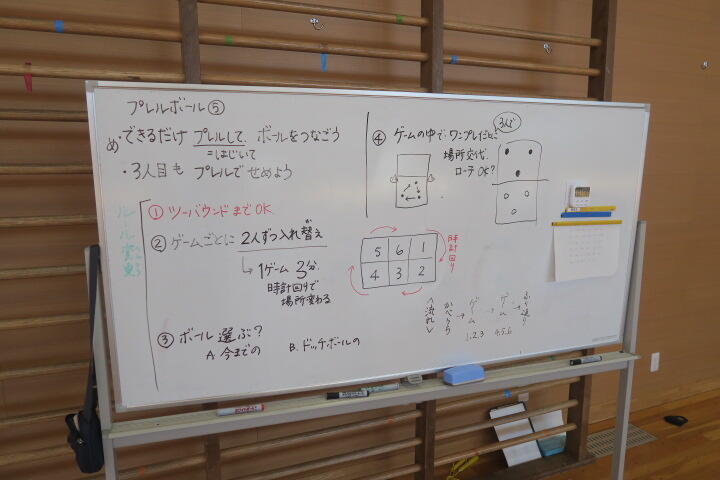 プレルボール⑤
め・できるだけ プレルして ボールをつなごう
=はじいて
・3人目も プレルで せめよう
ルール変更
① ツーバウンドまでOK
② ゲームごとに 2人ずつ入れ替え
が
↳ 1ゲーム 3分
時計回りで
場所変わる
③ ボール 選ぶ?
A 今までの
B. ドッチボールの
④ ゲームの中で ワンプレイごとに
場所交代
ローテ OK?
3人で
5 6 1
4 3 2
時計回り
<流れ>
→ ゲーム → ゲーム → ふり返り
1.2.3 4.5.6